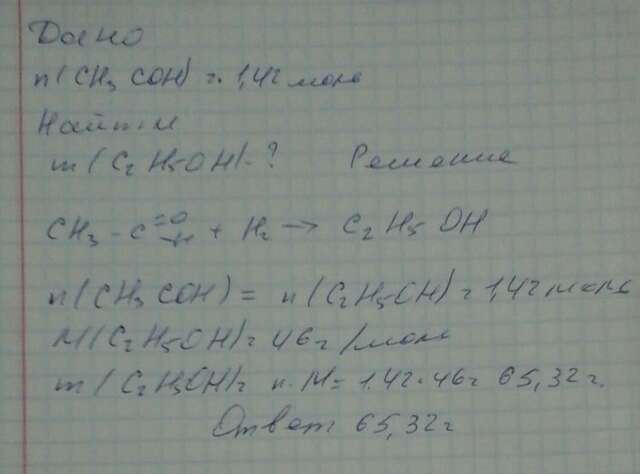 Дано
n(CH3 COH) = 1,42 моль
Найти
m(C2H5OH) - ? Решение
CH3 - C =O -H + H2 → C2H5OH
n(CH3 COH) = n(C2H5OH) = 1,42 моль
M(C2H5OH) = 46г/моль
m(C2H5OH) = n·M = 1,42·46 = 65,32г.
Ответ 65,32г